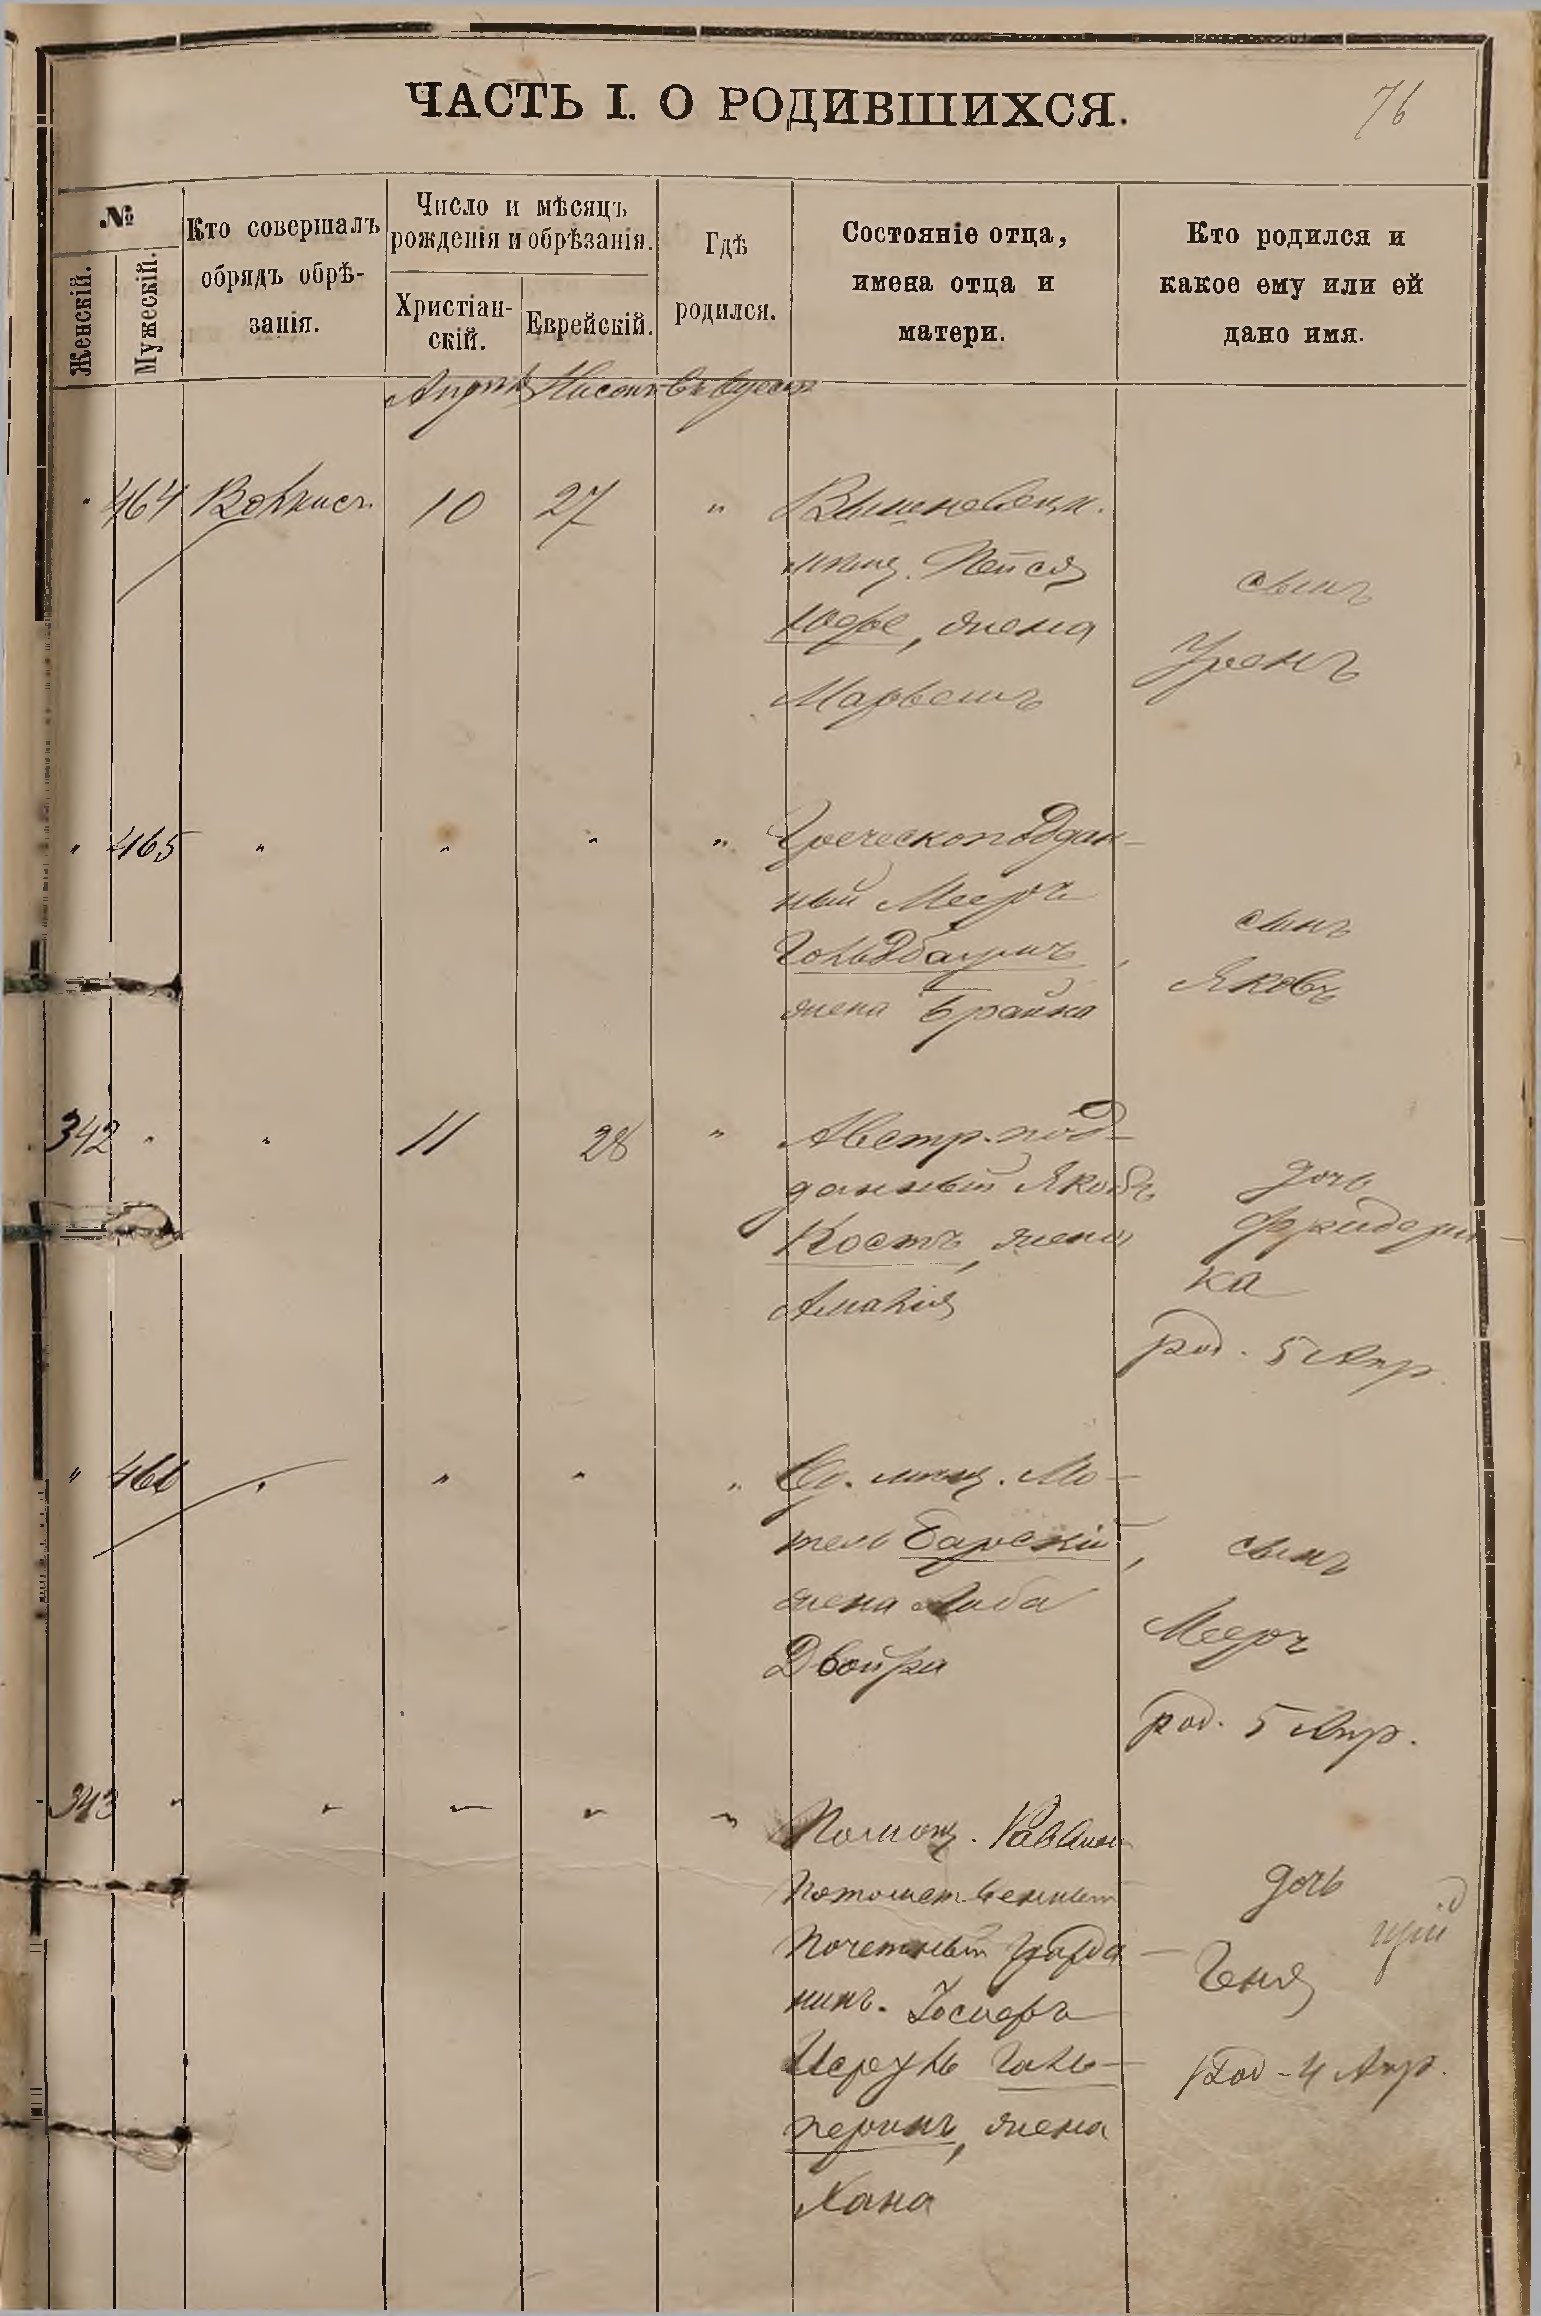 ЧАСТЬ I. О РОДИВШИХСЯ.
76
№
Женскій.
Мужескій.
Кто совершалъ
обрядъ обрѣ-
занія.
Число и мѣсяцъ
рожденія и обрѣзанія.
Христіан-
скій.
Еврейскій.
Гдѣ
родился.
Состояніе отца,
имена отца и
матери.
Кто родился и
какое ему или ей
дано имя.
" 464 10 27 "
мѣщ. Пейся
, жена
сынъ
" 465 " " " "
Греческоподдан-
ный Мееръ
Гольдбаумъ,
жена Брайна
сынъ
Яковъ
342 " " 11 28 "
Австр. под-
данный Якобъ
Костъ, жена
Амалія
дочь
Фридери-
ка
род. 5 Апр.
" 466 " " " "
Од. мѣщ. Мо-
тель Барскій,
жена Либа
Двойра
сынъ
Мееръ
род. 5 Апр.
343 " " " " "
Помощ. Раввина
Потомственный
Почетный Гражда-
нинъ. Іосифъ
Исруль Галь-
перинъ, жена
Хана
дочь
Геня
Род - 4 Апр.